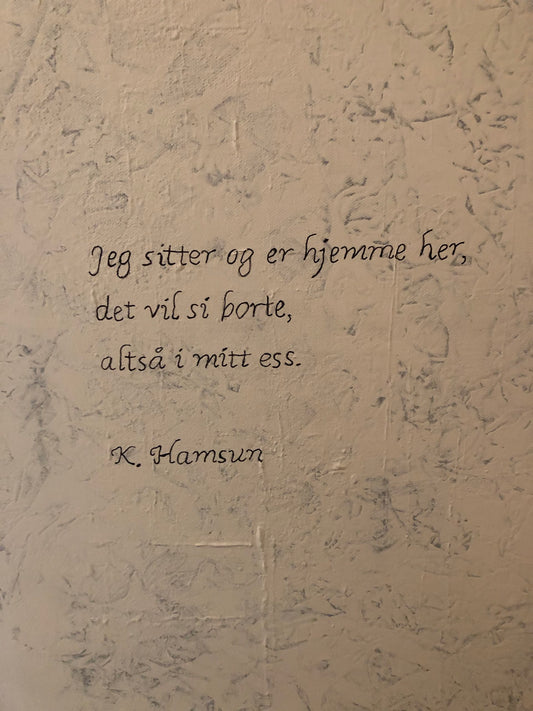 Jeg sitter og er hjemme her,
det vil si borte,
altså i mitt ess.
K. Hamsun